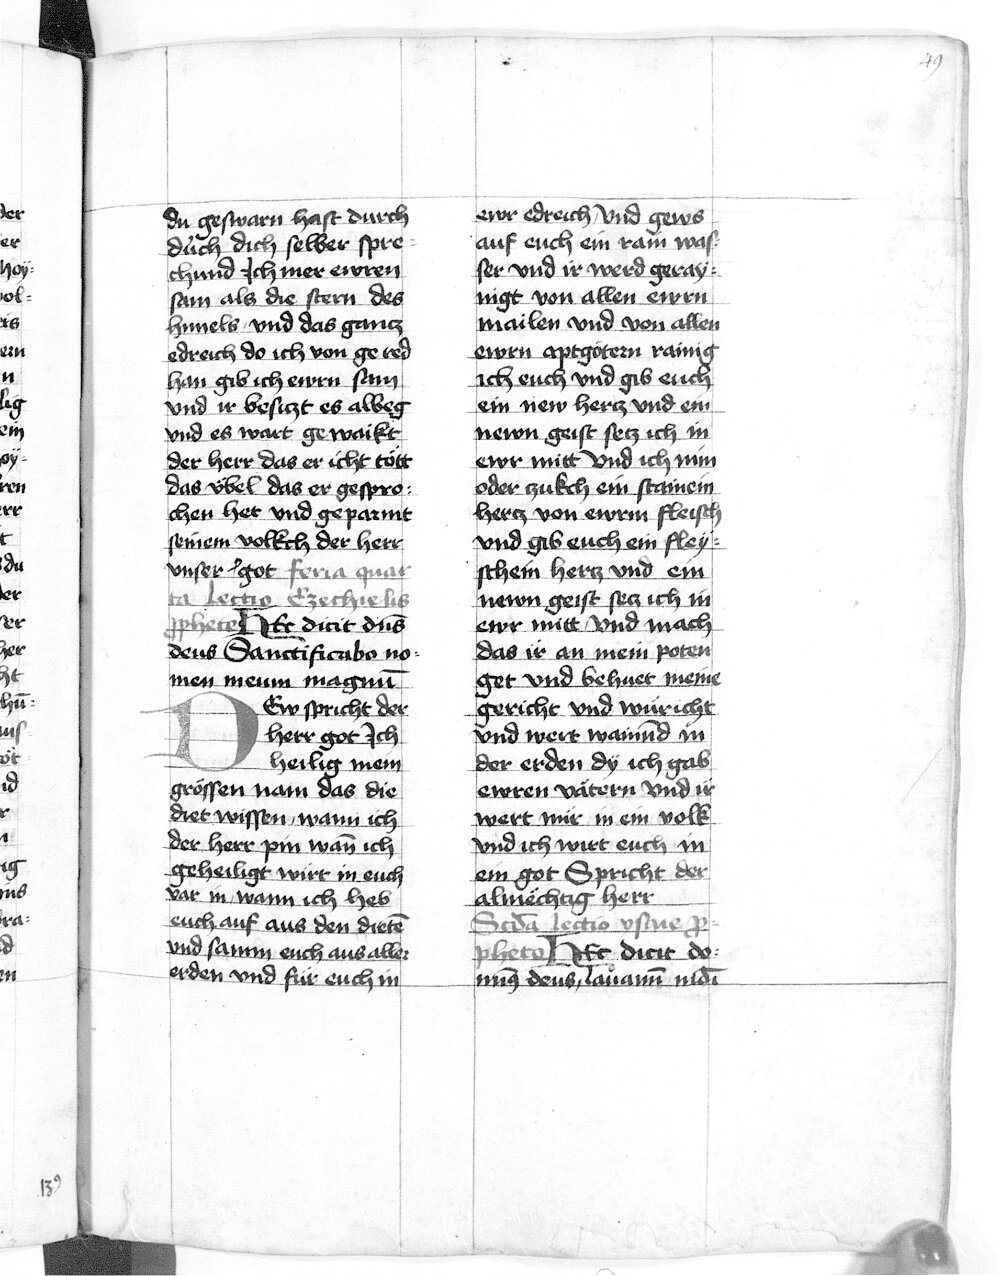 49
du geswarn hast durch
durch dich selber spre-
chund Ich mer ewren
sam als die stern des
himels vnd das gancz
edreich do ich von ge red
han gib ich ewrn sam
vnd ir besiczt es albeg
vnd es wart ge waikt
der herr das er icht tött
das vbel das er gespro-
chen het vnd geparmt
seinem volkch der herr
vnser got feria quar
ta lectio Ezechielis
pphete HEc dicit dn̄s
deus Sanctificabo no-
men meum magnū
DEw spricht der
herr got Ich
heilig mein
grössen nam das die
diet wissen wann ich
der herr pin wan̄ ich
geheiligt wirt in euch
var in wann ich heb
euch auf aus den dietē
vnd samm euch aus aller
erden vnd für euch in
ewr edreich vnd gews
auf euch ein rain was-
ser vnd ir werd geray-
nigt von allen ewrn
mailen vnd von allen
ewrn aptgötern rainig
ich euch vnd gib euch
ein new hercz vnd ein
newn geist secz ich in
ewr mitt vnd ich nim
oder zukch ein stainein
hercz von ewrm fleisch
vnd gib euch ein fley-
schein hercz vnd ein
newn geist secz ich in
ewr mitt vnd mach
das ir an mein poten
get vnd behuet meine
gericht vnd würicht
vnd wert wanūd in
der erden dy ich gab
ewren vätern vnd ir
wert mir in ein volk
vnd ich wirt euch in
ein got Spricht der
almëchtig herr
Scd̄a lectio ysaie p-
phete HEc dicit do-
min9 deus lauamī mūdi
139